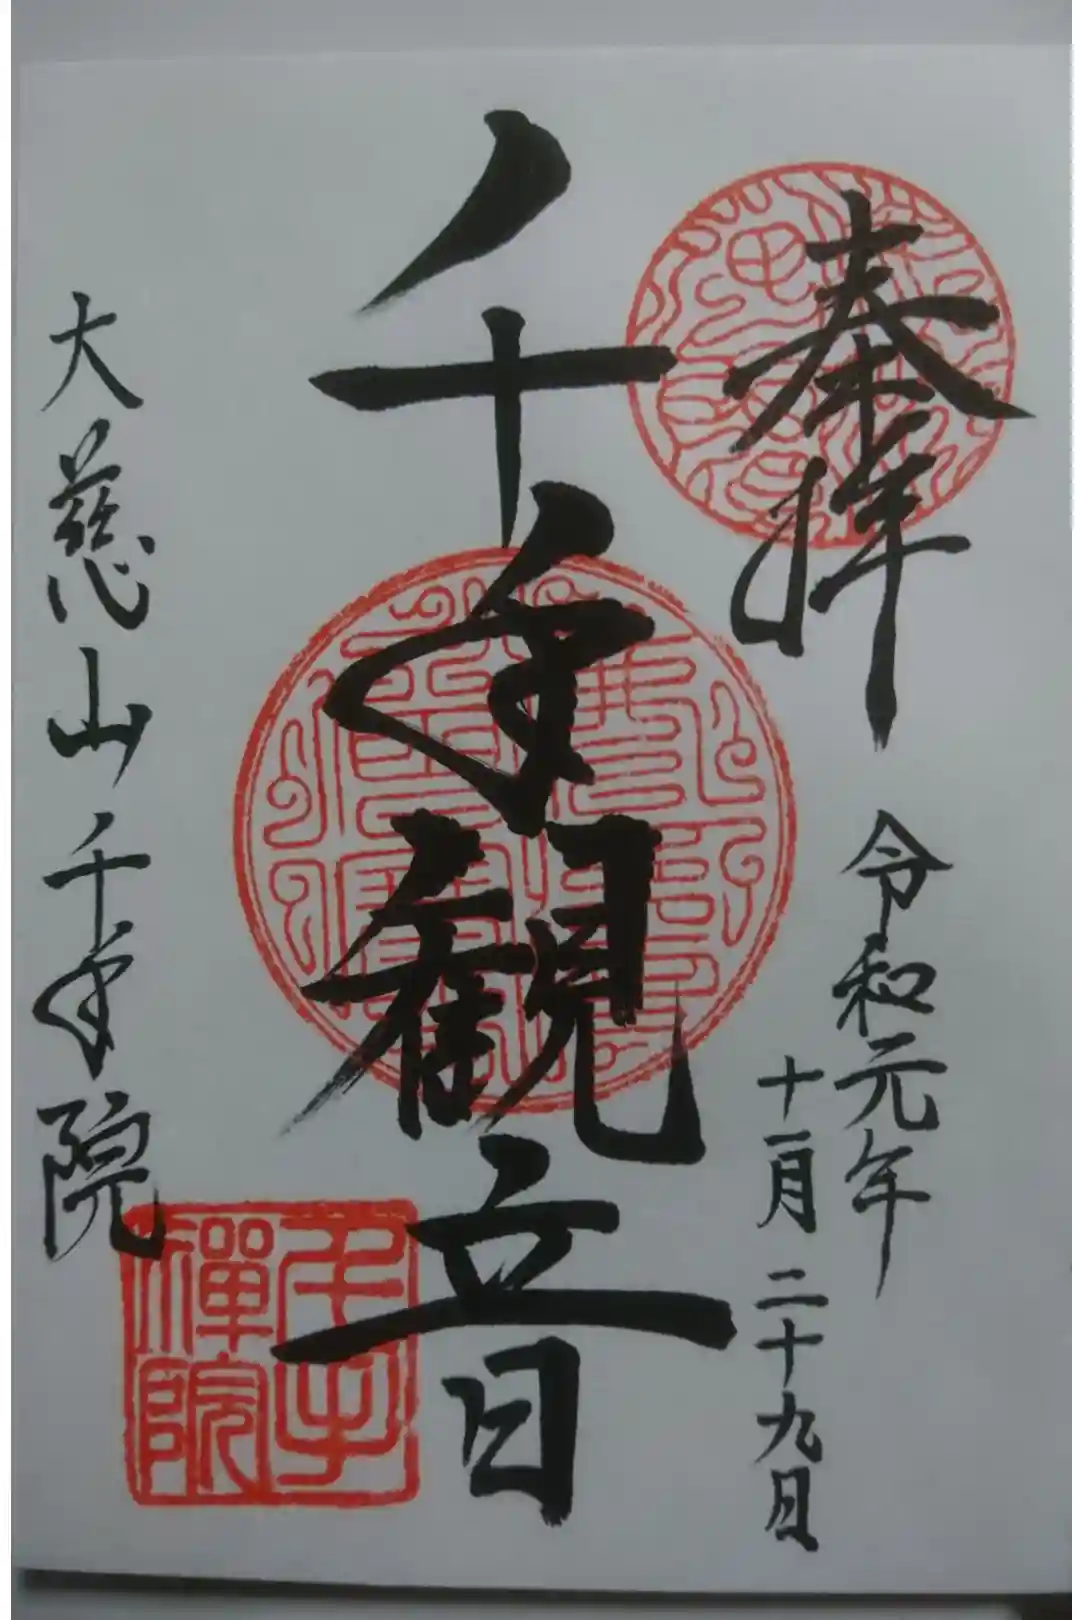 奉拝
令和元年
十一月二十九日
千手観音
大慈山千手院
千手
禪院